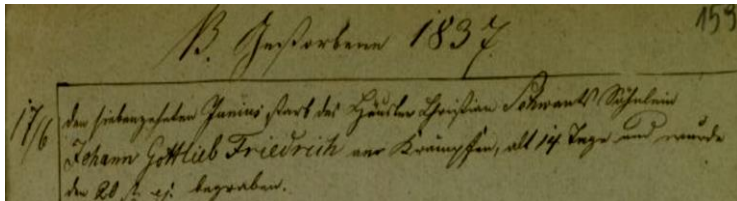 159
B. Gestorbene 1837.
17/6 den siebenzehnten Junius starb des Häusler Christian Schwants Söhnlein
Johann Gottlieb Friedrich an Krämpfen, alt 14 Tage und wurde
den 20 ej. begraben.